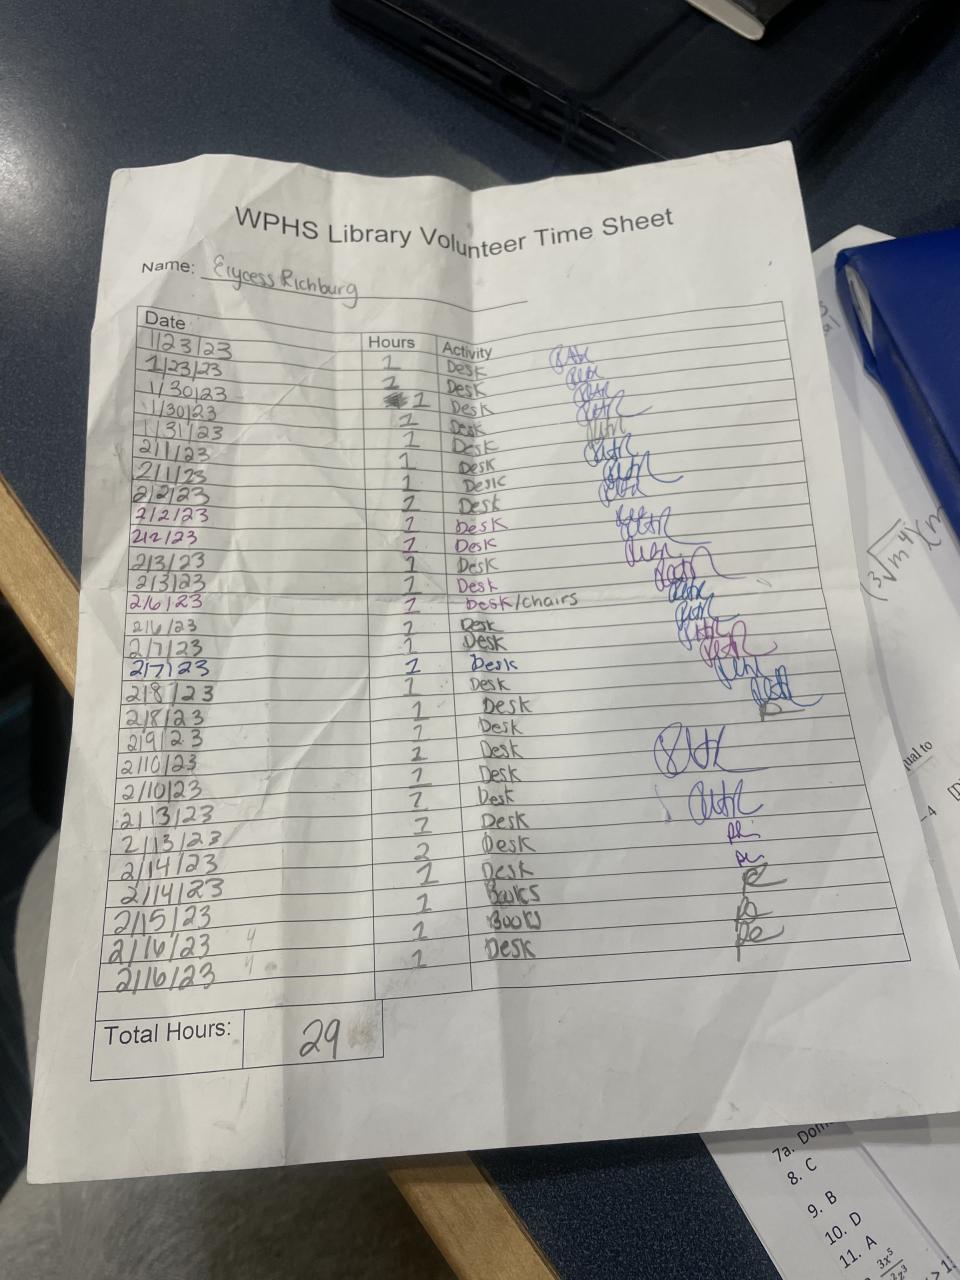 WPHS Library Volunteer Time Sheet
Name: Elycess Richburg
Date Hours Activity
1/23/23 1 Desk
1/23/23 1 Desk
1/30/23 1 Desk
1/30/23 1 Desk
1/31/23 1 Desk
2/1/23 1 Desk
2/1/23 1 Desk
2/2/23 1 Desk
2/2/23 1 Desk
2/2/23 1 Desk
2/3/23 1 Desk
2/3/23 1 Desk
2/6/23 1 Desk/chairs
2/6/23 1 Desk
2/7/23 1 Desk
2/7/23 1 Desk
2/8/23 1 Desk
2/8/23 1 Desk
2/9/23 1 Desk
2/10/23 1 Desk
2/10/23 1 Desk
2/13/23 1 Desk
2/13/23 1 Desk
2/14/23 2 Desk
2/14/23 1 Desk
2/15/23 1 Books
2/16/23 1 Books
2/16/23 1 Desk
Total Hours: 29
7a.
8. C
9. B
10. D
11. A